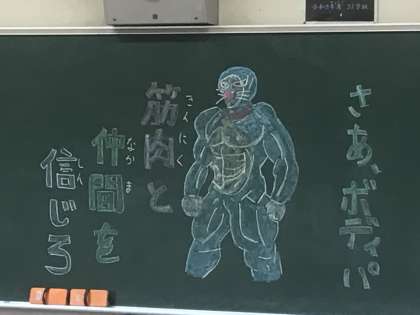 さあ、ボディパ
筋肉と
きんにく
仲間を
なかま
信じろ
しん